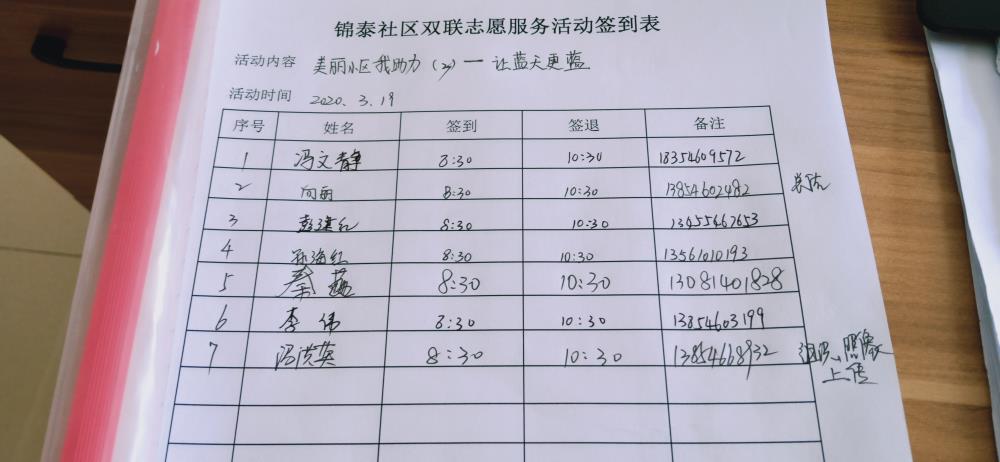 锦泰社区双联志愿服务活动签到表
活动内容 美丽小区我助力（2）一让蓝天更蓝
活动时间 2020.3.19
序号 姓名 签到 签退 备注
1 冯文静 8:30 10:30 18354609572
2 向丽 8:30 10:30 13854602482 总结
3 彭洪红 8:30 10:30 13455467653
4 孙海红 8:30 10:30 13561010193
5 秦蕴 8:30 10:30 13081401828
6 李伟 8:30 10:30 13854603199
7 冯洪英 8:30 10:30 13854668932 组织、照像
上传